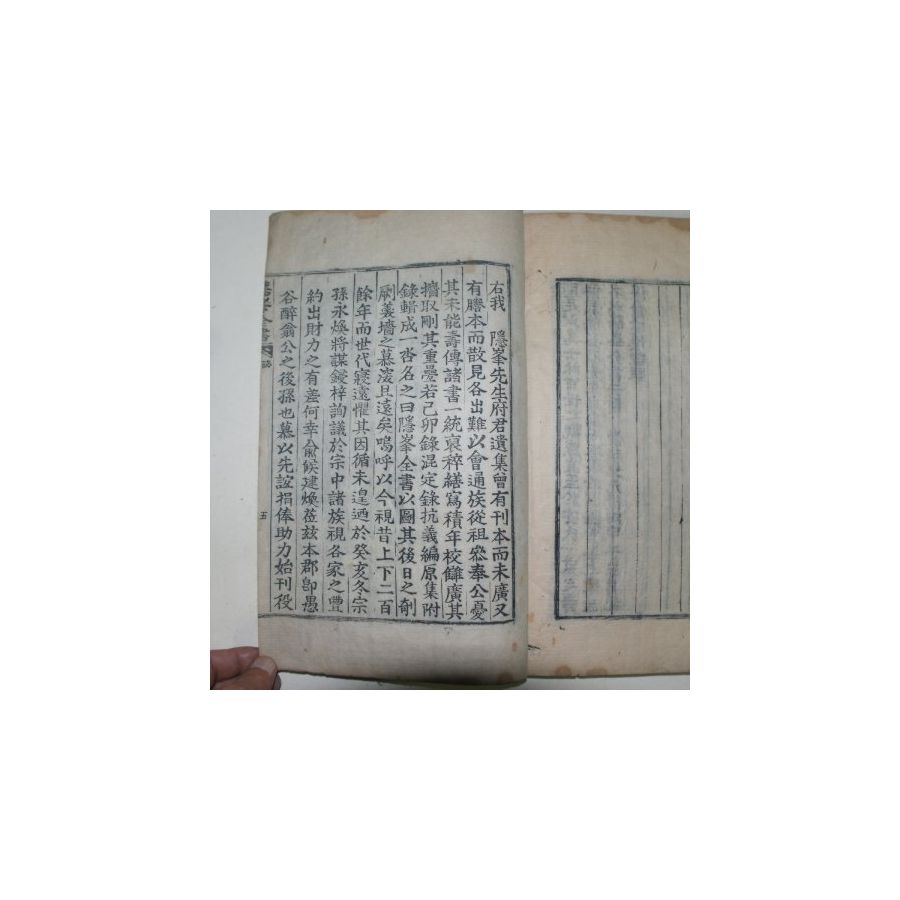 右我 隱峯先生府君遺集曾有刊本而未廣又
有謄本而散見各出難以會通族從祖叅奉公憂
其未能壽傳諸書一統裒稡繕寫積年校讎廣其
墻取刪其重疊若己卯錄混定錄抗義編原集附
錄輯成一沓名之曰隱峯全書以圖其後日之剞
劂羹墻之慕滾且遠矣嗚呼以今視昔上下二百
餘年而世代寢遠懼其因循未遑迺於癸亥冬宗
孫永煥將謀鋟梓詢議於宗中諸族視各家之豊
約出財力之有差何幸俞候建煥莅玆本郡卽愚
谷醉翁公之後孫也慕以先誼捐俸助力始刊役
隱峯全書
跋
五